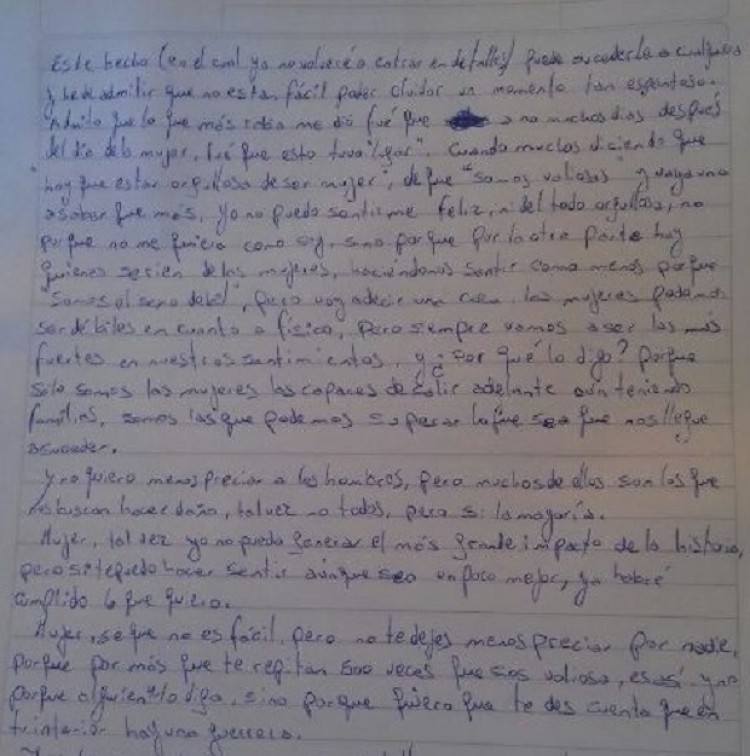 Este hecho (en el cual ya no volveré a entrar en detalles) puede sucederle a cualquiera
y he de admitir que no es tan fácil poder olvidar un momento tan espantoso.
Admito que lo que más rabia me dió fué que a no muchos días después
del día de la mujer, fué que esto tuvo "lugar". Cuando muchos diciendo que
"hay que estar orgullosa de ser mujer", de que "somos valiosas" y vaya uno
a saber que más, yo no puedo sentirme feliz, ni del todo orgullosa, no
porque no me quiera como soy, sino porque por la otra parte hay
quienes se rien de las mujeres, haciendonos sentir como menos porque
"Somos el sexo debil", pero voy a decir una cosa, las mujeres podemos
ser débiles en cuanto a físico, pero siempre vamos a ser las más
fuertes en nuestros sentimientos, y ¿Por qué lo digo? Porque
solo somos las mujeres las capaces de salir adelante aún teniendo
familias, somos las que podemos superar lo que sea que nos llegue
a suceder.
Y no quiero menospreciar a los hombres, pero muchos de ellos son los que
nos buscan hacer daño, tal vez no todos, pero si la mayoría.
Mujer, tal vez yo no pueda generar el más grande impacto de la historia,
pero si te puedo hacer sentir aunque sea un poco mejor, ya habré
cumplido lo que quiero.
Mujer, se que no es fácil, pero no te dejes menospreciar por nadie,
porque por más que te repitan 500 veces que sos valiosa, es así y no
porque alguien lo diga, sino porque quiero que te des cuenta que en
tu interior hay una guerrera.